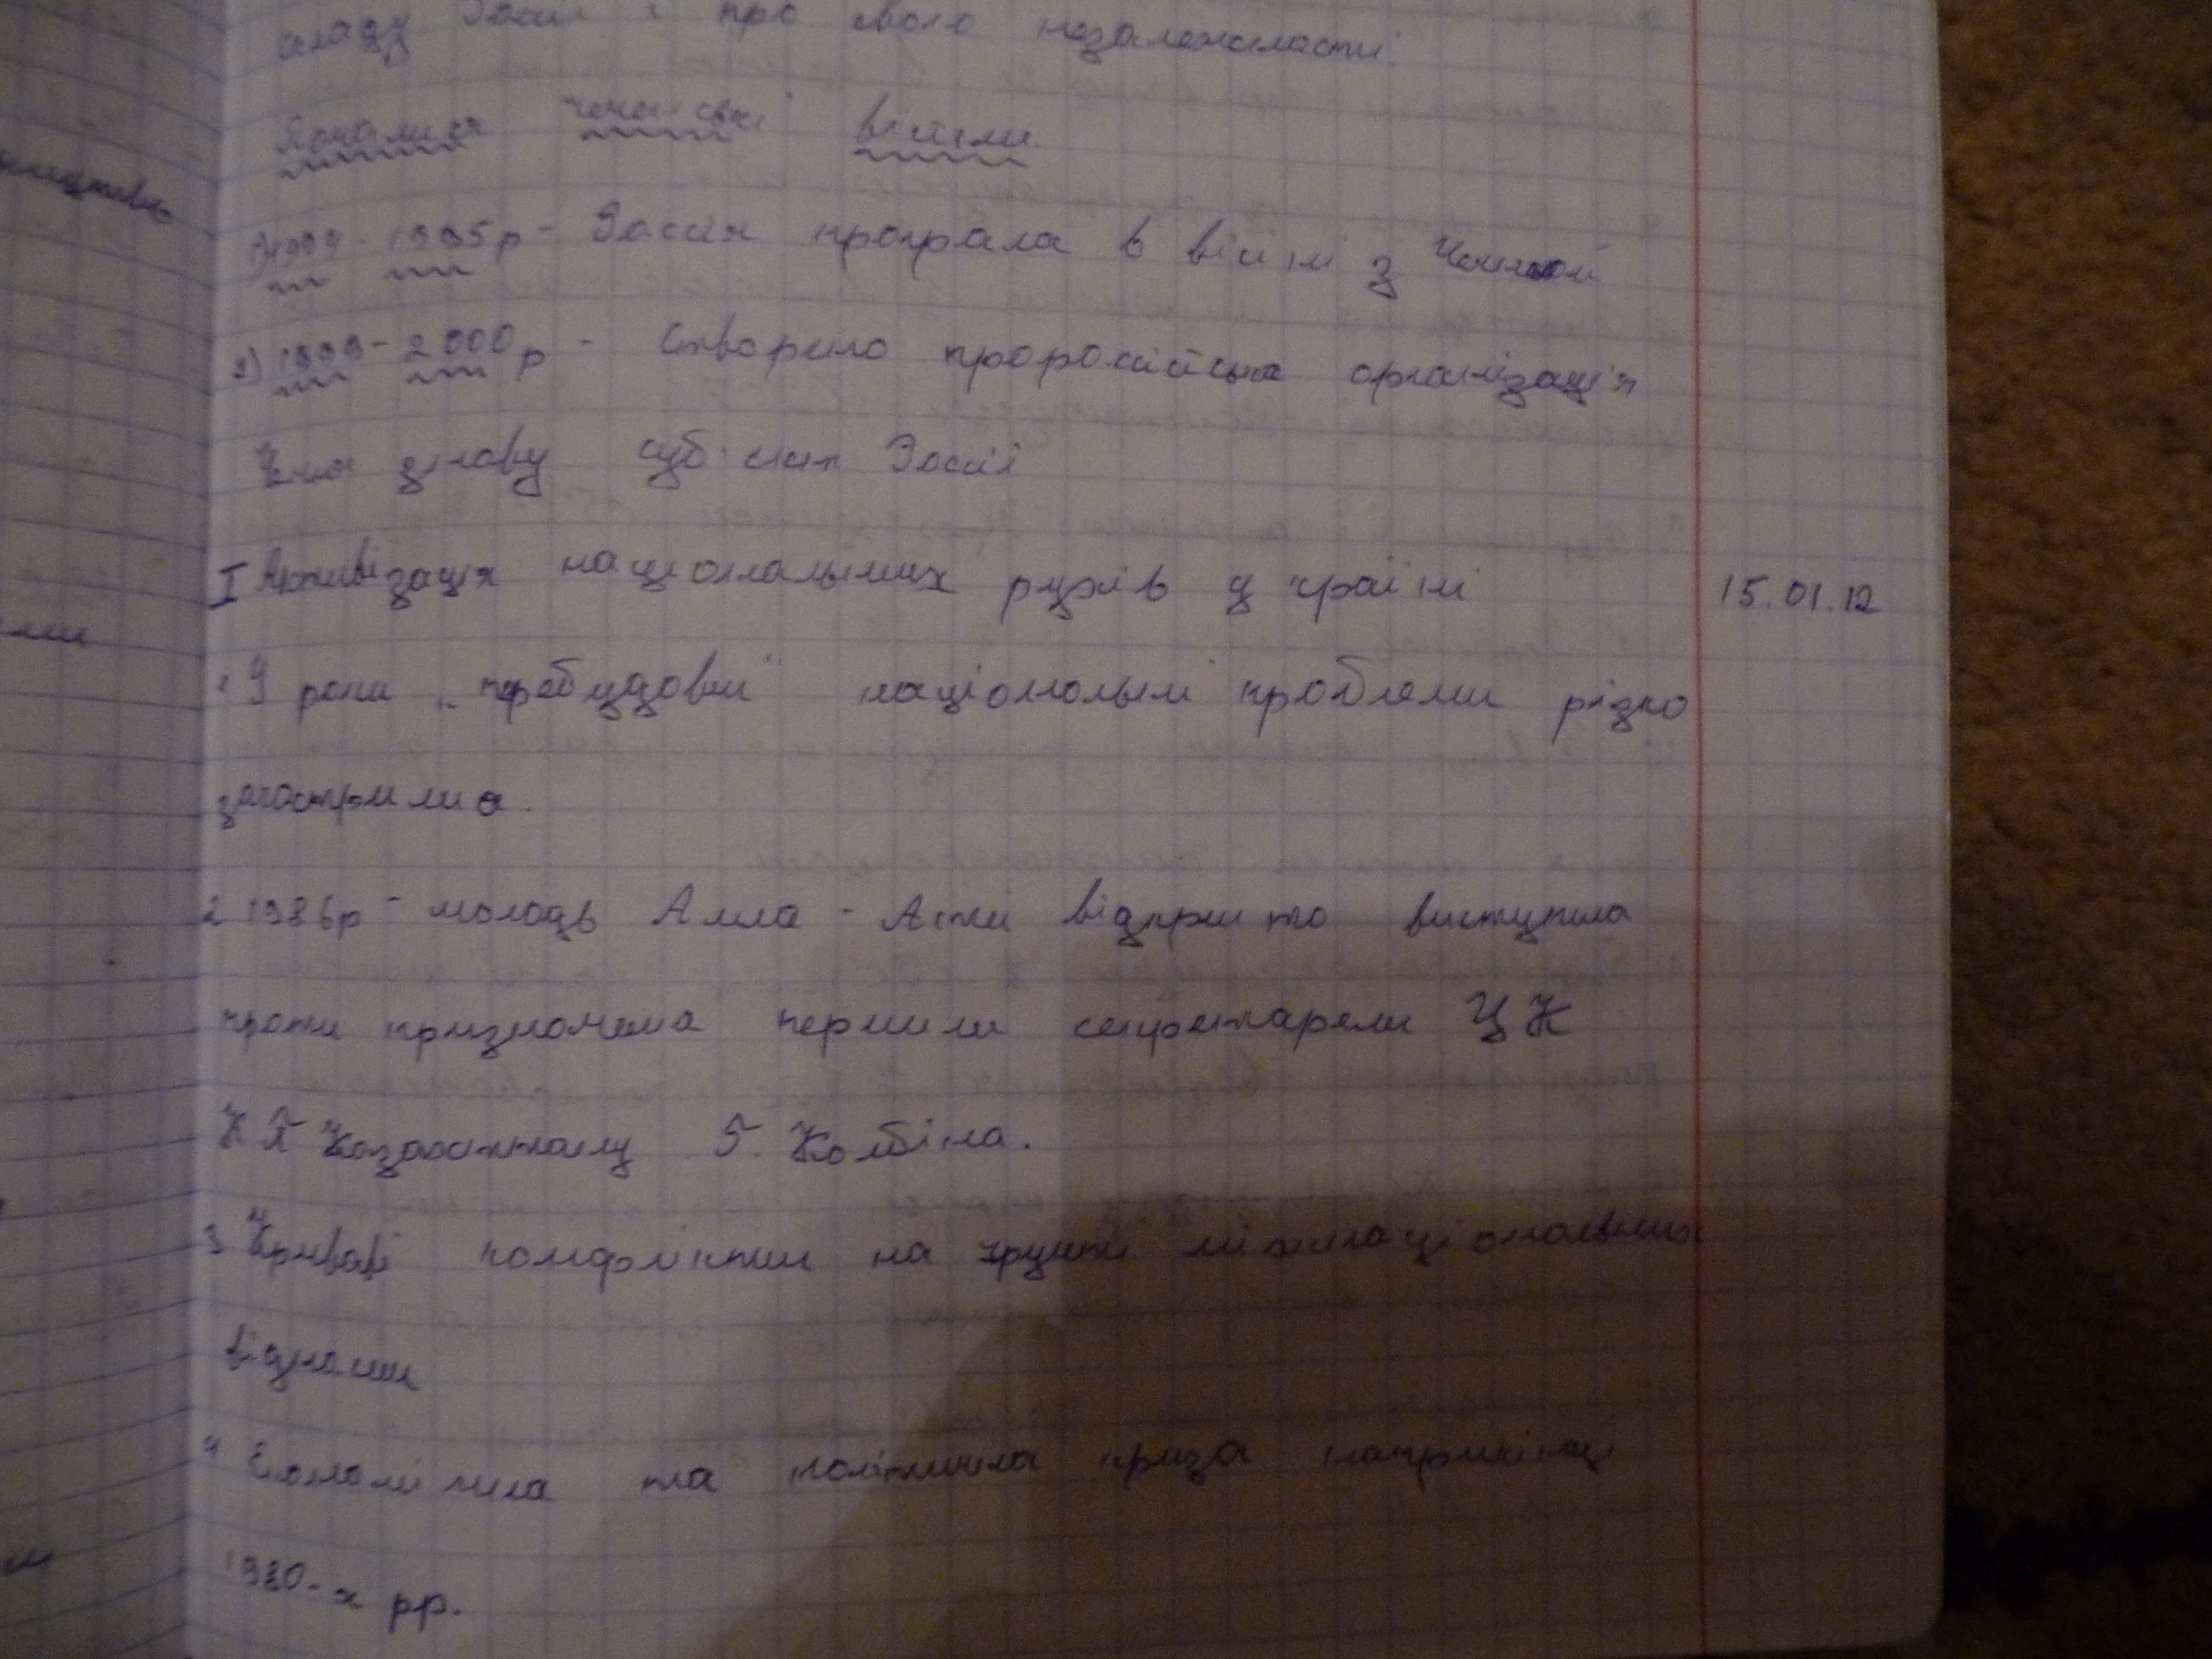 складу Росії і про свою незалежность
Почалися чеченські війни
1) 1994 - 1995р - Россія програла в війні з Чечньой
2) 1999 - 2000р - створено проросійська організація
знову суб'єкт Росії
I Активізація національних рухів у країні 15.01.12
1 У роки „перебудови" національні проблеми різко
загострилис.
2 1986р - молодь Алма - Ати відкрито виступила
проти призначена першим секретарем ЦК
КП Казахстану Г. Колбіна.
3 Криваві конфлікти на грунті міжнаціональних
відносин
4 Економічна та політична криза наприкінці
1980-х рр.